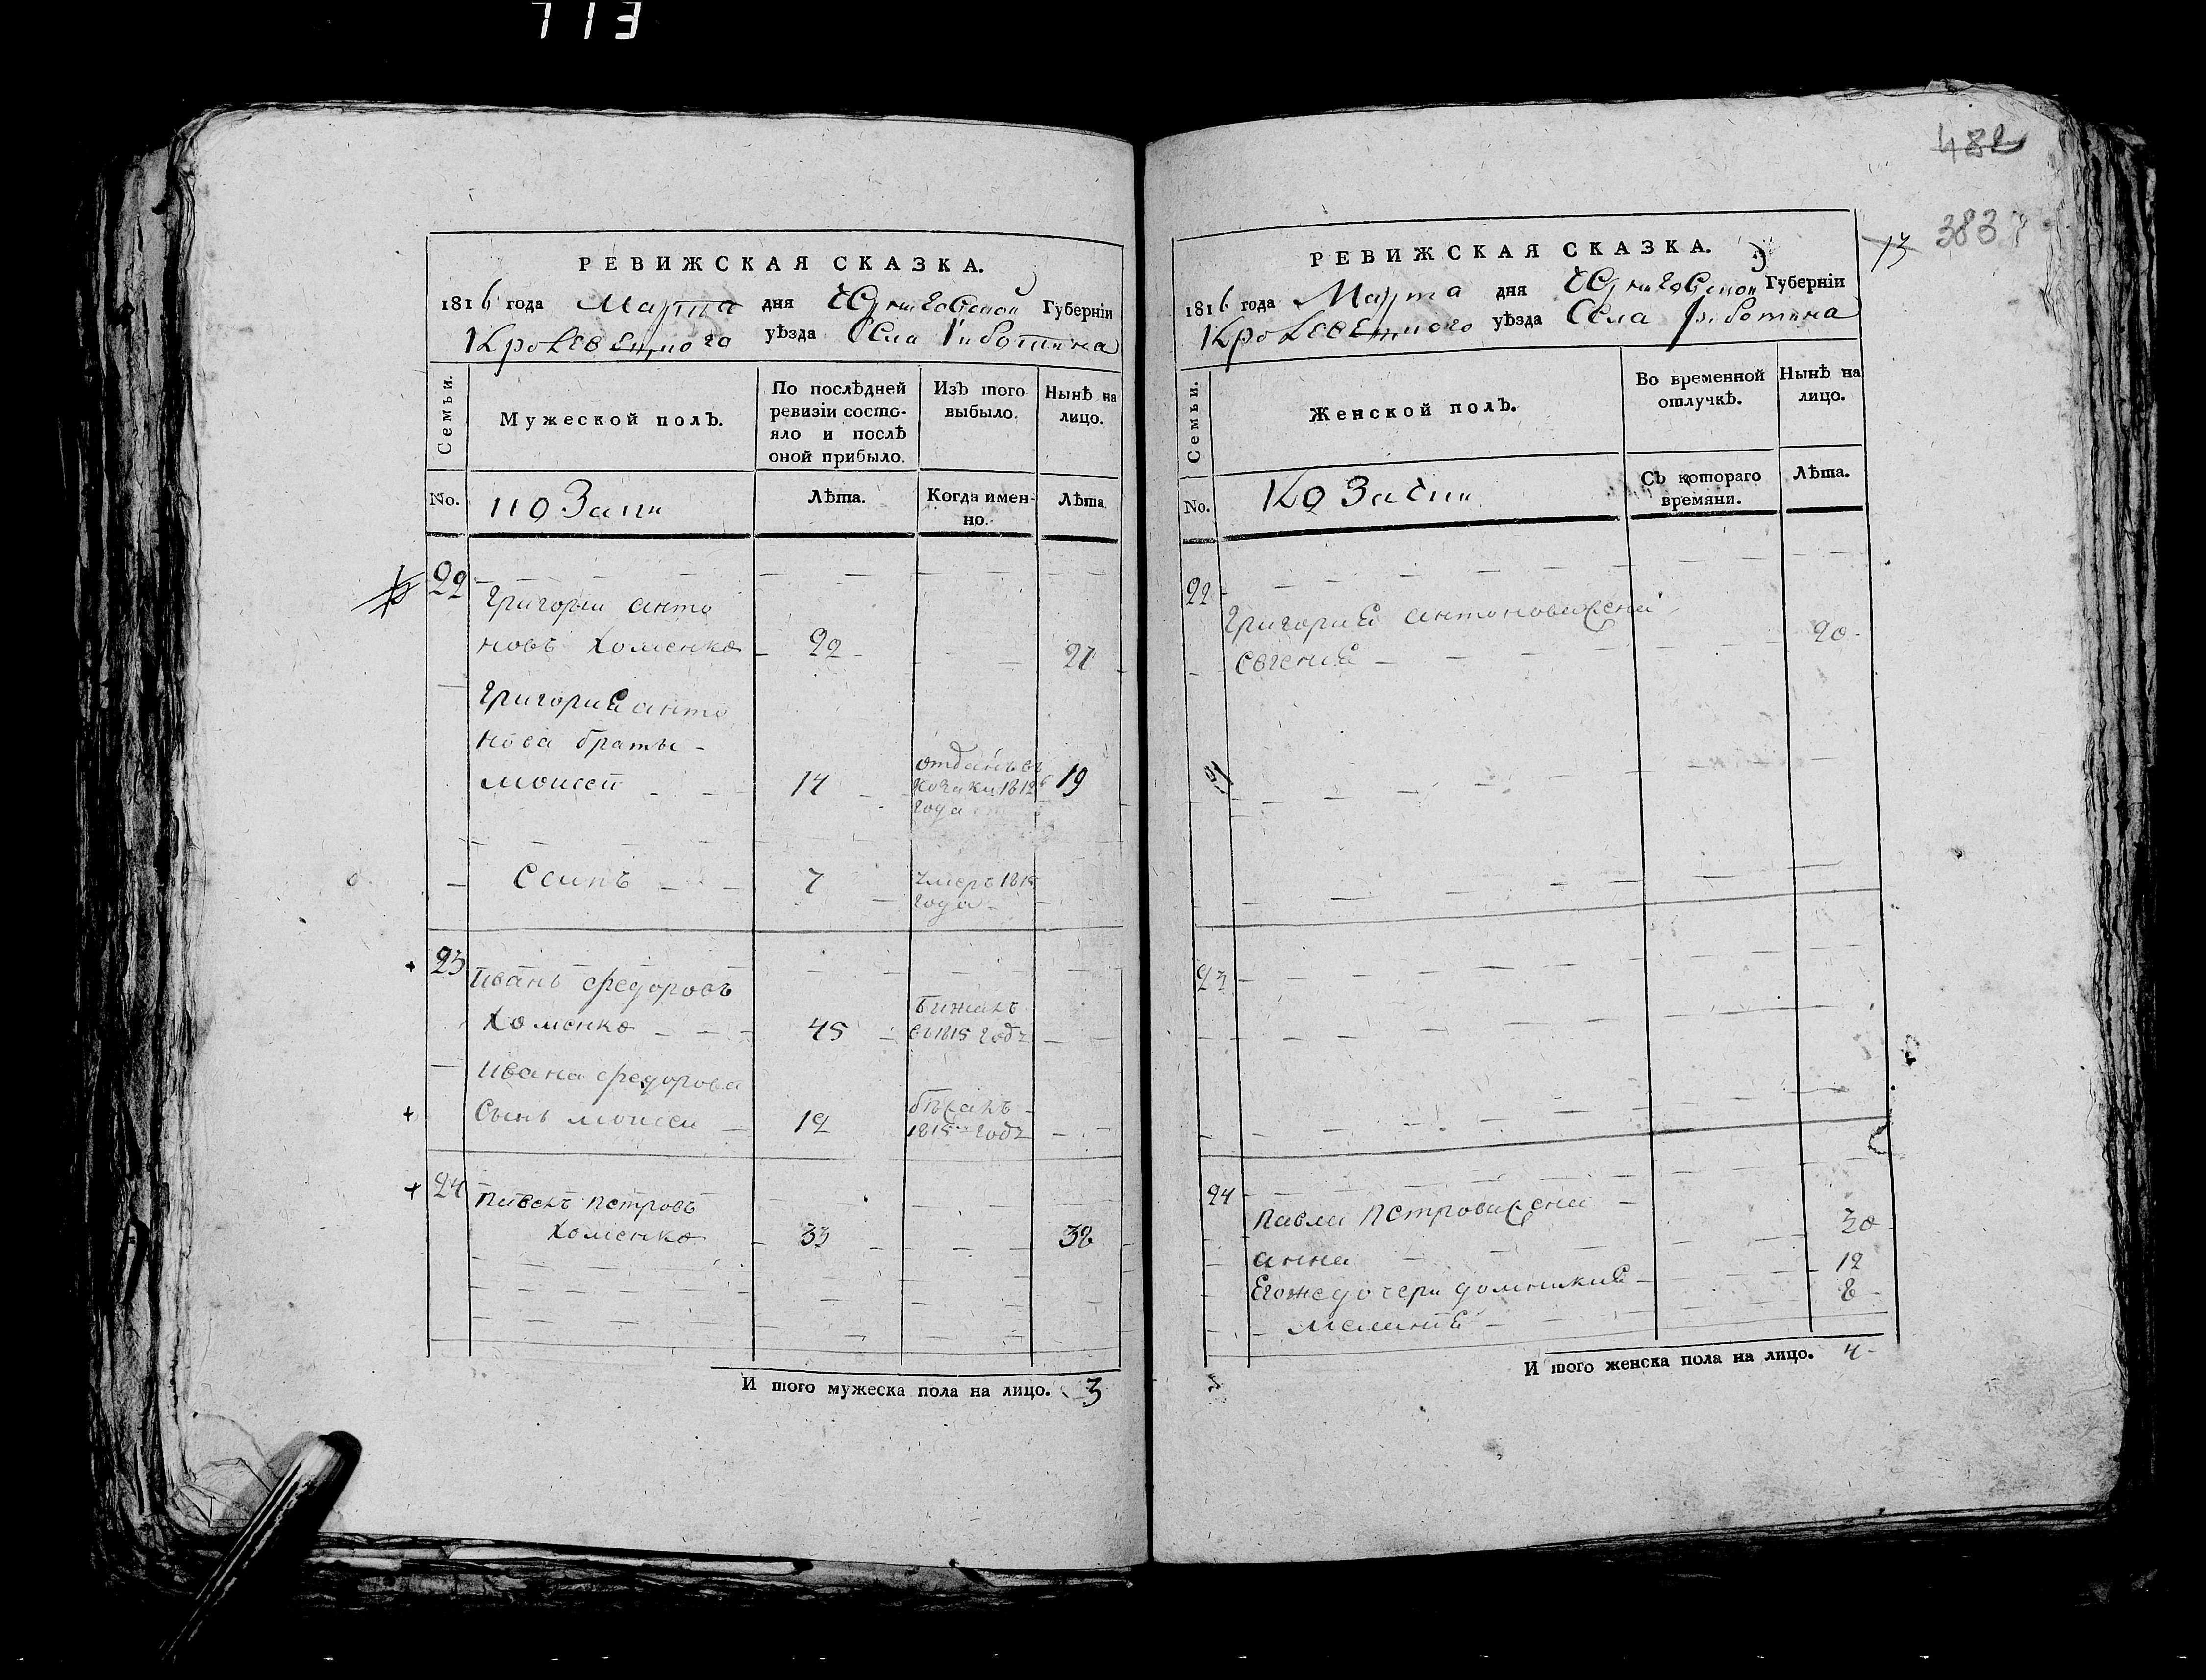 713
РЕВИЖСКАЯ СКАЗКА.
1816 года Марта дня Черниговской Губерніи
Кролевецкого уѣзда Села
Семьи.
Мужеской полъ.
По послѣдней ревизіи состо-
яло и послѣ
оной прибыло.
Изъ того выбыло.
Нынѣ на лицо.
No.
Козаки
Лѣта.
Когда имен-
но.
Лѣта
22
Григорій анто
новъ Хоменко 22 27
Григорія анто
нова братья
моисей 14 отданъ въ козаки 1812 года 19
7 умеръ 1815 года
23
Иванъ федоровъ
Хоменко 45 бижалъ 1815 годѣ
Ивана федорова
Сынъ моисей 12 бѣжалъ 1815 годѣ
24
павелъ петровъ
Хоменко 33 38
И того мужеска пола на лицо. 3
482
383
13
РЕВИЖСКАЯ СКАЗКА.
1816 года Марта дня Черниговской Губерніи
Кролевецкого уѣзда Села
Семьи.
Женской полъ.
Во временной отлучкѣ.
Нынѣ на лицо.
No.
Козачки
Съ котораго времяни.
Лѣта.
22
Григория антонова жена
евгения 20
23
24
павла петрова жена
анна 30
Егожедочери домникия 12
мелания 8
И того женска пола на лицо. 4